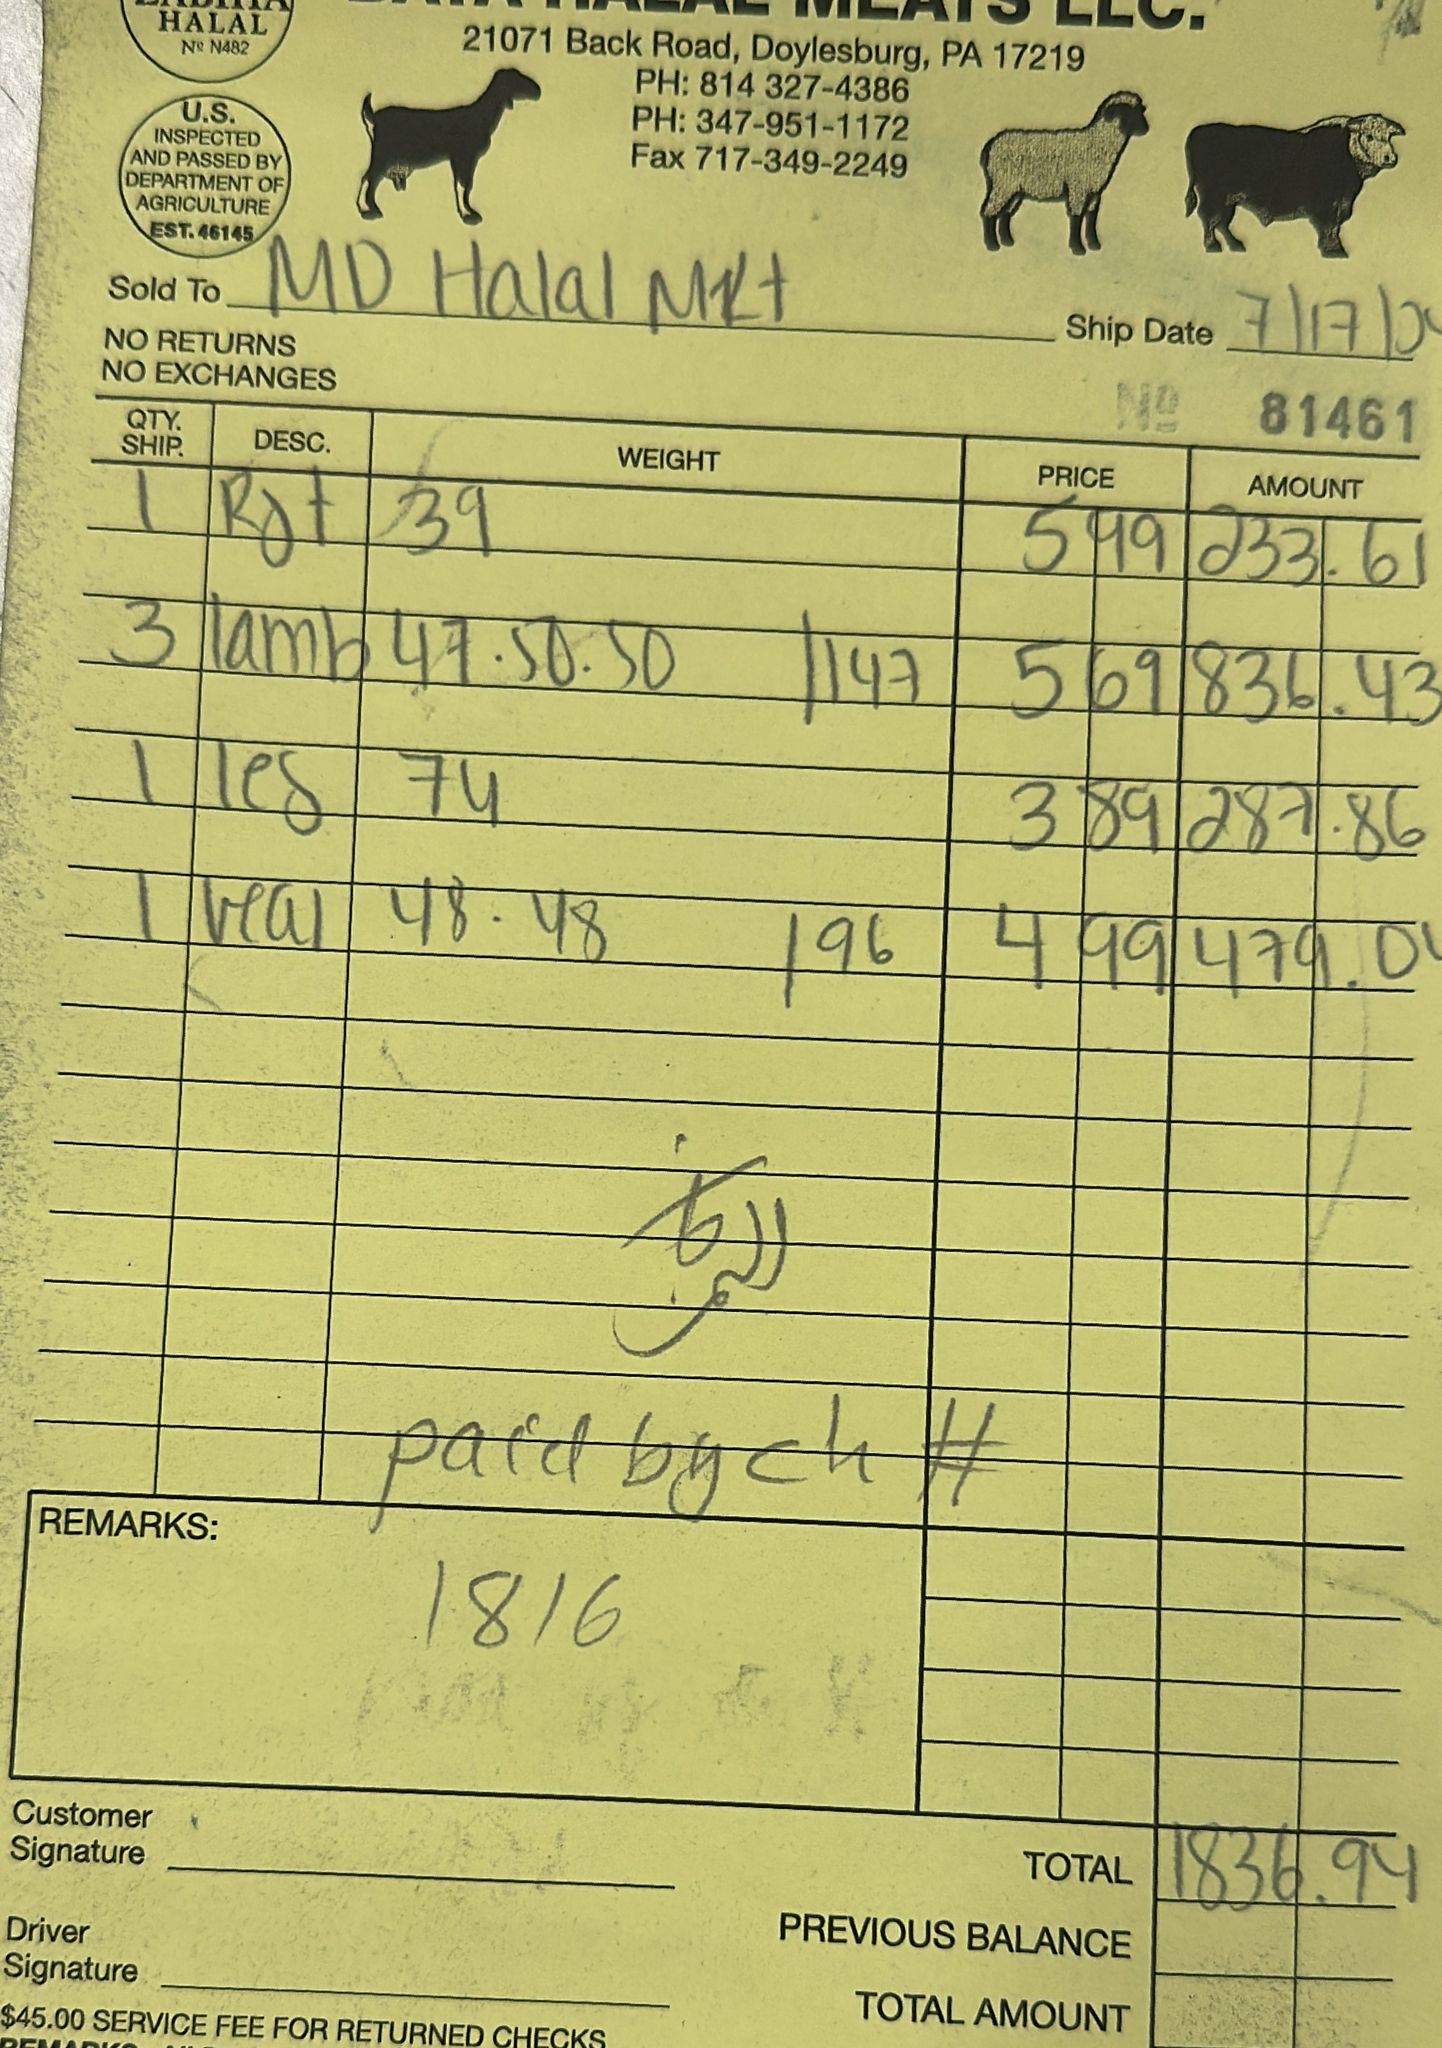 HALAL
No N482
HALAL MEATS LLC.
21071 Back Road, Doylesburg, PA 17219
PH: 814 327-4386
PH: 347-951-1172
Fax 717-349-2249
U.S.
INSPECTED
AND PASSED BY
DEPARTMENT OF
AGRICULTURE
EST. 46145
Sold To MD Halal Mkt
Ship Date 7/17/
NO RETURNS
NO EXCHANGES
No 81461
QTY. SHIP. DESC. WEIGHT PRICE AMOUNT
1 39 5 99 233.61
3 lamb 47.50.50 /147 5 69 836.43
1 leg 74 3 89 287.86
1 veal 48.48 /96 4 99 479.04
paid by ch #
REMARKS:
1816
Customer
Signature
TOTAL 1836.94
Driver
Signature
PREVIOUS BALANCE
TOTAL AMOUNT
$45.00 SERVICE FEE FOR RETURNED CHECKS